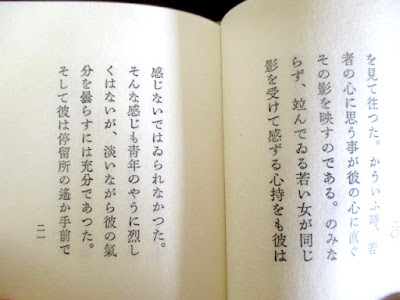 を見て往つた。かういふ時、若
者の心に思う事が彼の心に直ぐ
その影を映すのである。のみな
らず、竝んでゐる若い女が同じ
影を受けて感ずる心持をも彼は
感じないではゐられなかつた。
そんな感じも青年のやうに烈し
くはないが、淡いながら彼の氣
分を曇らすには充分であつた。
そして彼は停留所の遙か手前で
二一